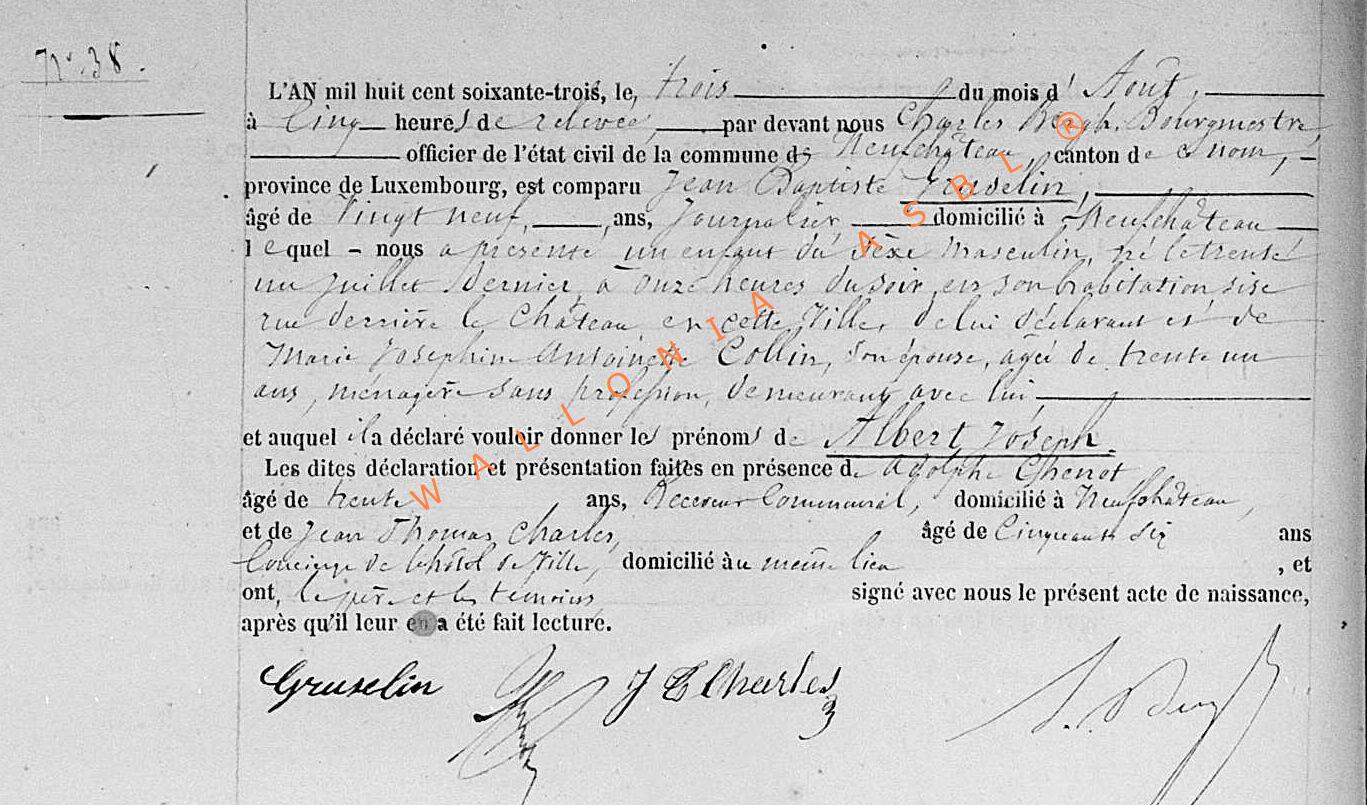 N° 38.
L'AN mil huit cent soixante-trois, le, trois du mois d' Août,
à Cinq heures de relevée, par devant nous Charles Bergh, Bourgmestre,
officier de l'état civil de la commune de Neufchâteau, canton de ce nom,
province de Luxembourg, est comparu Jean Baptiste Gruselin,
âgé de Vingt neuf, ans, Journalier domicilié à Neufchâteau
lequel - nous a présenté un enfant du Sexe Masculin, né le trente
un Juillet dernier, à onze heures du soir, en son habitation sise
rue derrière le Château en cette Ville, de lui déclarant et de
Marie Joséphine Antoinette Collin, son épouse, âgée de trente un
ans, ménagère sans profession, demeurant avec lui
et auquel il a déclaré vouloir donner les prénoms de Albert Joseph.
Les dites déclaration et présentation faites en présence de Adolphe Chenot
âgé de trente ans, Receveur Communal, domicilié à Neufchâteau,
et de Jean Thomas Charles, âgé de Cinquante Six ans
Concierge de l'hôtel de Ville, domicilié au même lieu , et
ont, le père et les témoins signé avec nous le présent acte de naissance,
après qu'il leur en a été fait lecture.
Gruselin J T Charles
WALLONIA ASBL ®